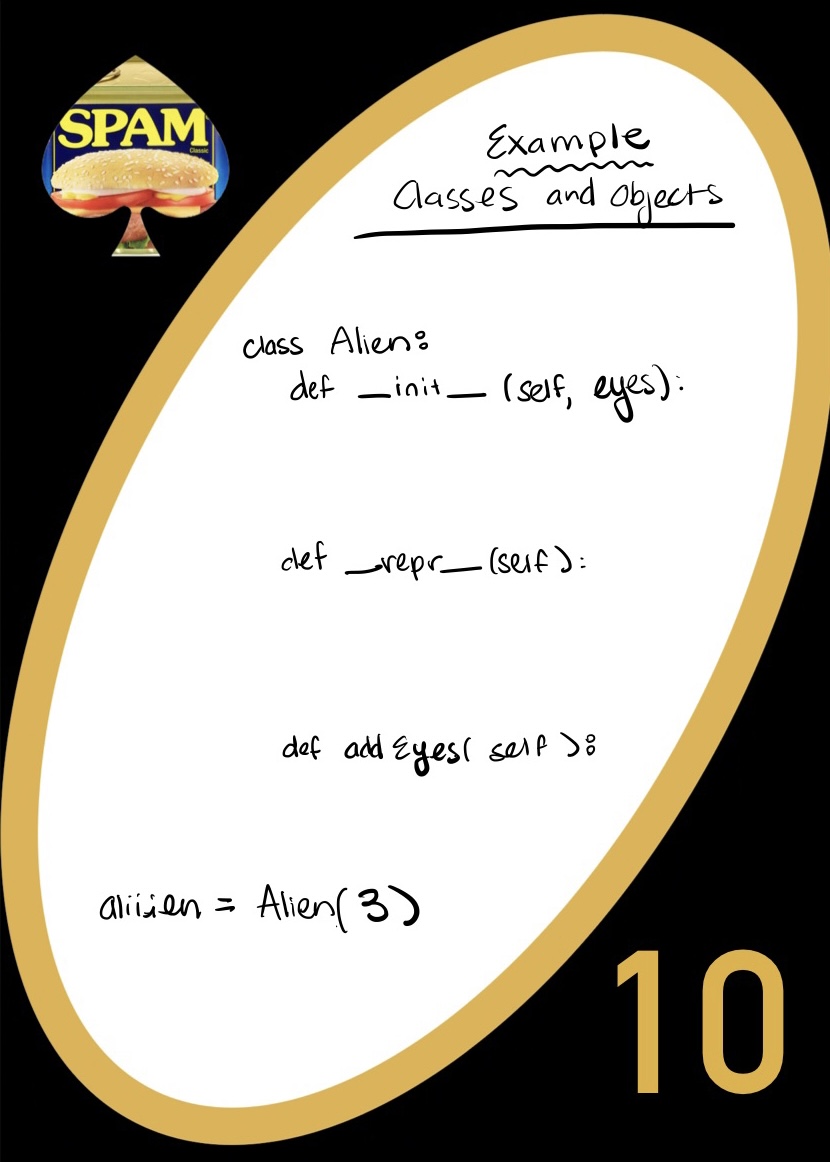 SPAM
Classic
Example
Classes and Objects
class Alien:
def __init__ (self, eyes):
def __repr__ (self):
def addEyes( self ):
aliiien = Alien(3)
10